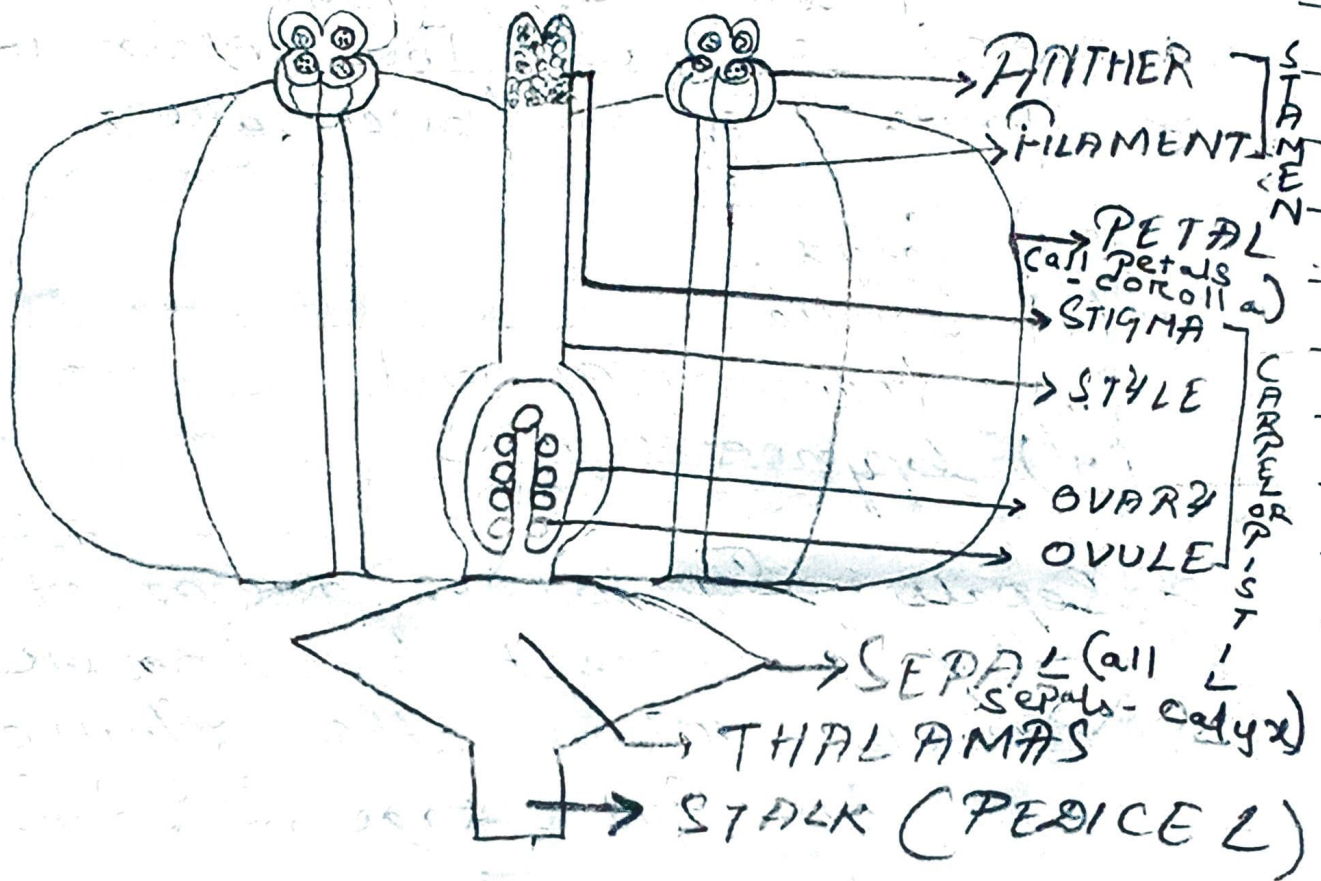 ANTHER
FILAMENT
STAMEN
PETAL
(all petals
-corolla)
STIGMA
STYLE
OVARY
OVULE
CARPEL OR PISTIL
SEPAL (all
sepals- calyx)
THALAMAS
STALK (PEDICEL)